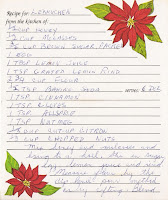 Recipe for LEBKUCHEN
from the Kitchen of
1/2 CUP HONEY
1/2 CUP MOLASSES
3/4 CUP BROWN SUGAR PACKED
1 EGG
1 TSP LEMON JUICE
1 TSP GRATED LEMON RIND
2 3/4 CUP FLOUR
1/2 TSP BAKING SODA serves
1 TSP CINNAMON
1 TSP CLOVES
1 TSP ALLSPICE
1 TSP NUTMEG
CUP CITRON
CUP CHOPPED NUTS
Mix honey and molasses and
bring to a boil. Stir in sugar
egg, lemon juice and
Measure flour by
dip
by sifting. Blend